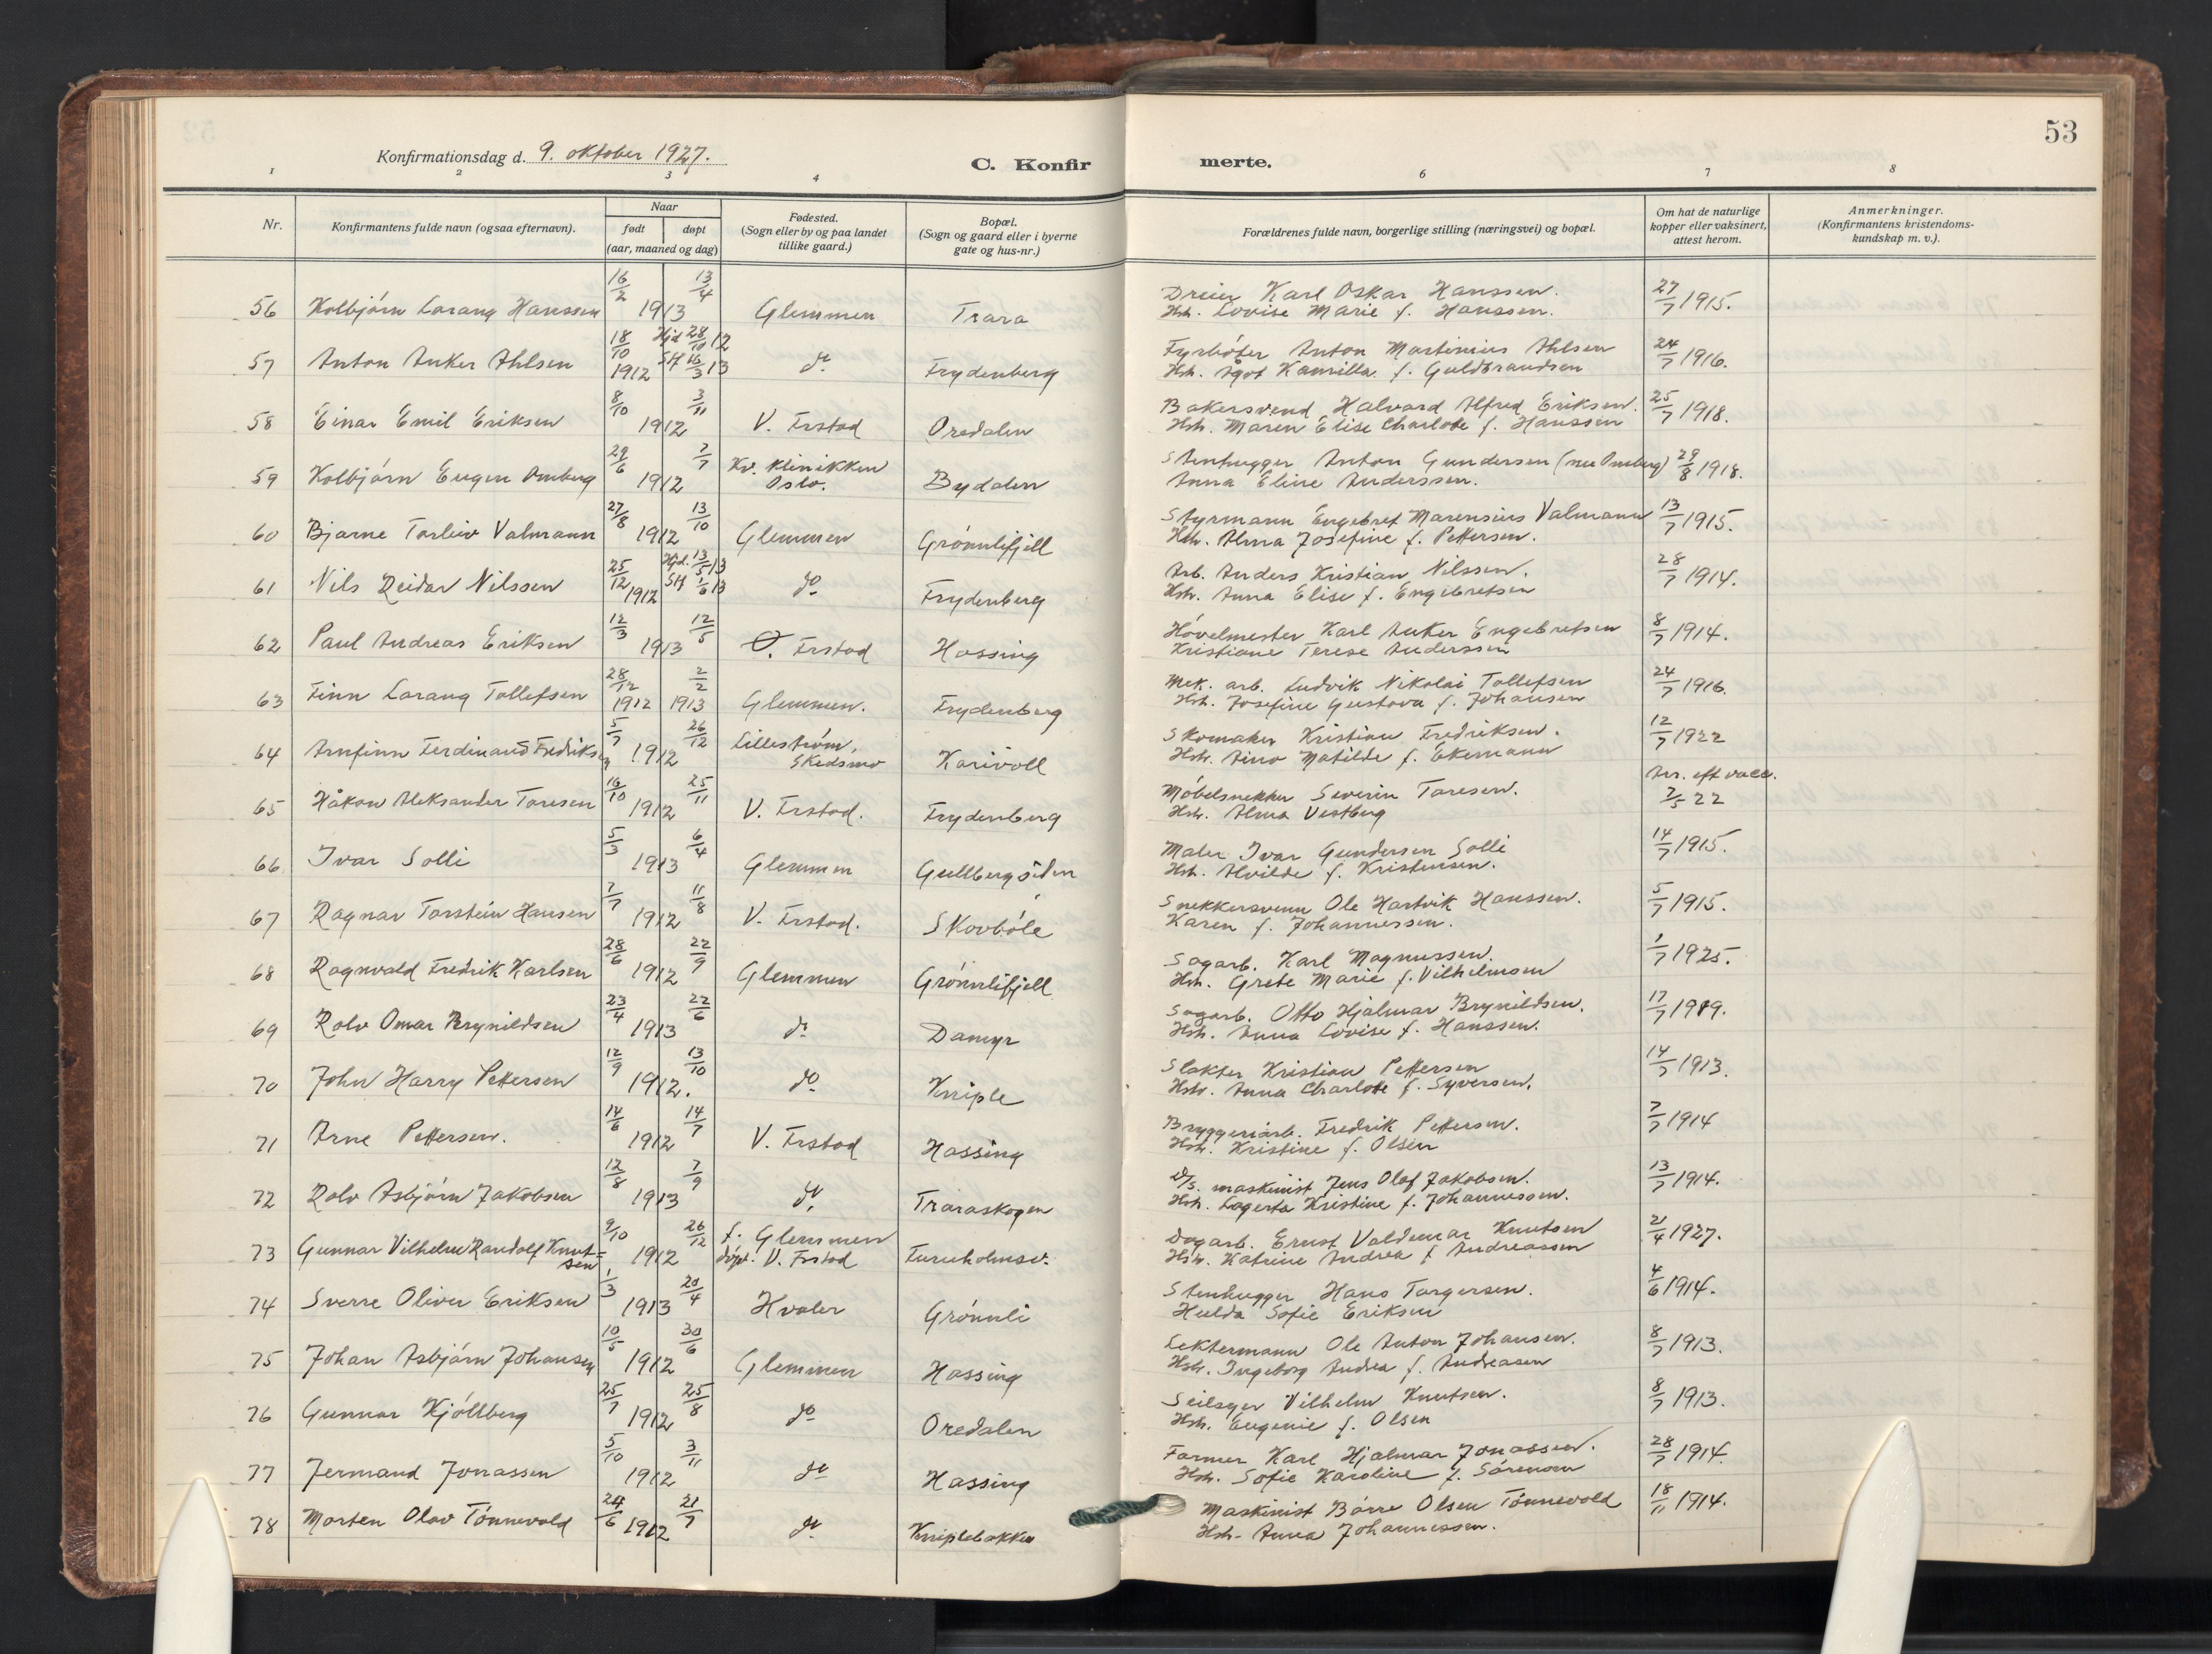 53
Konfirmationsdag d. 9. oktober 1927.
C. Konfir
merte.
1 2 3 4 6 7 8
Nr.
Konfirmantens fulde navn (ogsaa efternavn).
Naar
født døpt
(aar, maaned og dag)
Fødested.
(Sogn eller by og paa landet
tillike gaard.)
Bopæl.
(Sogn og gaard eller i byerne
gate og hus-nr.)
Forældrenes fulde navn, borgerlige stilling (næringsvei) og bopæl.
Om hat de naturlige
kopper eller vaksinert,
attest herom.
Anmerkninger.
(Konfirmantens kristendoms-
kundskap m. v.).
56 Kolbjørn Larang Hanssen 16/2 13/4 1913 Glemmen Trara
Dreier Karl Oskar Hanssen.
Hst. Lovise Marie f. Hanssen.
27/7 1915.
57 Anton Anker Ahlsen 18/10 1912 Hjd 28/10 12 SH 16/3 13 do Frydenberg
Fyrbøter Anton Martinius Ahlsen
Hst. Ågot Kamilla f. Guldbrandsen
24/7 1916.
58 Einar Emil Eriksen 8/10 3/11 1912 V. Frstad Oredalen
Bakersvend Halvard Alfred Eriksen.
Hst. Maren Elise Charlotte f. Hanssen
25/7 1918.
59 Kolbjørn Eugen Omberg 29/6 7/7 1912 Kv. Klinikken Oslo. Bydalen
Stenhugger Anton Gundersen (nu Omberg)
Anna Eline Anderssen.
29/8 1918.
60 Bjarne Torleiv Valmann 27/8 13/10 1912 Glemmen Grønnlifjell
Styrmann Engebret Marensius Valmann
Hst. Alma Josefine f. Pettersen.
13/7 1915.
61 Nils Reidar Nilssen 25/12 1912 Hjd. 13/5 13 SH 1/6 13 do Frydenberg
Arb. Anders Kristian Nilssen.
Hst. Anna Elise f. Engebretsen
28/7 1914.
62 Paul Andreas Eriksen 12/3 12/5 1913 Ø. Frstad Hassing
Høvelmester Karl Anker Engebretsen
Kristiane Terese Anderssen
8/7 1914.
63 Finn Larang Tollefsen 28/12 1912 2/2 1913 Glemmen. Frydenberg
Mek. arb. Ludvik Nikolai Tollefsen
Hst. Josefine Gustava f. Johansen
24/7 1916.
64 Arnfinn Ferdinand Fredriksen 5/7 26/12 1912 Lillestrøm, Skedsmo Karivoll
Skomaker Kristian Fredriksen.
Hst. Aino Matilde f. Ekemann
12/7 1922
65 Håkon Aleksander Toresen 16/10 25/11 1912 V. Frstad. Frydenberg
Møbelsnekker Severin Toresen.
Hst. Alma Vestberg
An. eft vacc.
2/5 22
66 Ivar Solli 5/3 6/4 1913 Glemmen Gullbergsiden
Maler Ivar Gundersen Solli
Hst. Alvilde f. Kristensen.
14/7 1915.
67 Ragnar Torstein Hansen 7/7 11/8 1912 V. Frstad. Skovbøle
Snekkersvenn Ole Hartvik Hanssen.
Karen f. Johannessen.
5/7 1915.
68 Ragnvald Fredrik Karlsen 28/6 22/9 1912 Glemmen Grønnlifjell
Sagarb. Karl Magnussen.
Hst. Grete Marie f. Vilhelmsen
1/7 1925.
69 Rolv Omar Brynildsen 23/4 22/6 1913 do Damyr
Sagarb. Otto Hjalmar Brynildsen.
Hst. Anna Lovise f. Hanssen.
17/7 1919.
70 John Harry Pettersen 12/9 13/10 1912. do Kniple
Slakter Kristian Pettersen
Hst. Anna Charlotte f. Syversen.
14/7 1913.
71 Arne Pettersen. 14/6 14/7 1912 V. Frstad Hassing
Bryggeriarb. Fredrik Pettersen.
Hst. Kristine f. Olsen
7/7 1914
72 Rolv Asbjørn Jakobsen 12/8 7/9 1913 do Traraskogen
D/S. maskinist Jens Olaf Jakobsen.
Hst. Lagerta Kristine f. Johannessen.
13/7 1914.
73 Gunnar Vilhelm Randolf Knut=sen 9/10 26/12 1912 f. Glemmen døpt. V. Frstad Furuholmsv.
Dagarb. Ernst Valdemar Knutsen
Hst. Katrine Andrea f. Andreassen
21/4 1927.
74 Sverre Oliver Eriksen 1/3 20/4 1913 Hvaler Grønnli
Stenhugger Hans Torgersen.
Hulda Sofie Eriksen
4/6 1914.
75 Johan Asbjørn Johansen 10/5 30/6 1912 Glemmen Hassing
Lektermann Ole Anton Johansen.
Hst. Ingeborg Andrea f. Andreasen
8/7 1913.
76 Gunnar Kjøllberg 25/7 25/8 1912 do Oredalen
Seilsyer Vilhelm Knutsen.
Hst. Eugenie f. Olsen
8/7 1913.
77 Jermand Jonassen 5/10 3/11 1912 do Hassing
Former Karl Hjalmar Jonassen.
Hst. Sofie Karoline f. Sørensen
28/7 1914.
78 Morten Olav Tønnevold 24/6 21/7 1912 do Kniplebakken
Maskinist Børre Olsen Tønnevold
Hst. Anna Johannessen.
18/11 1914.